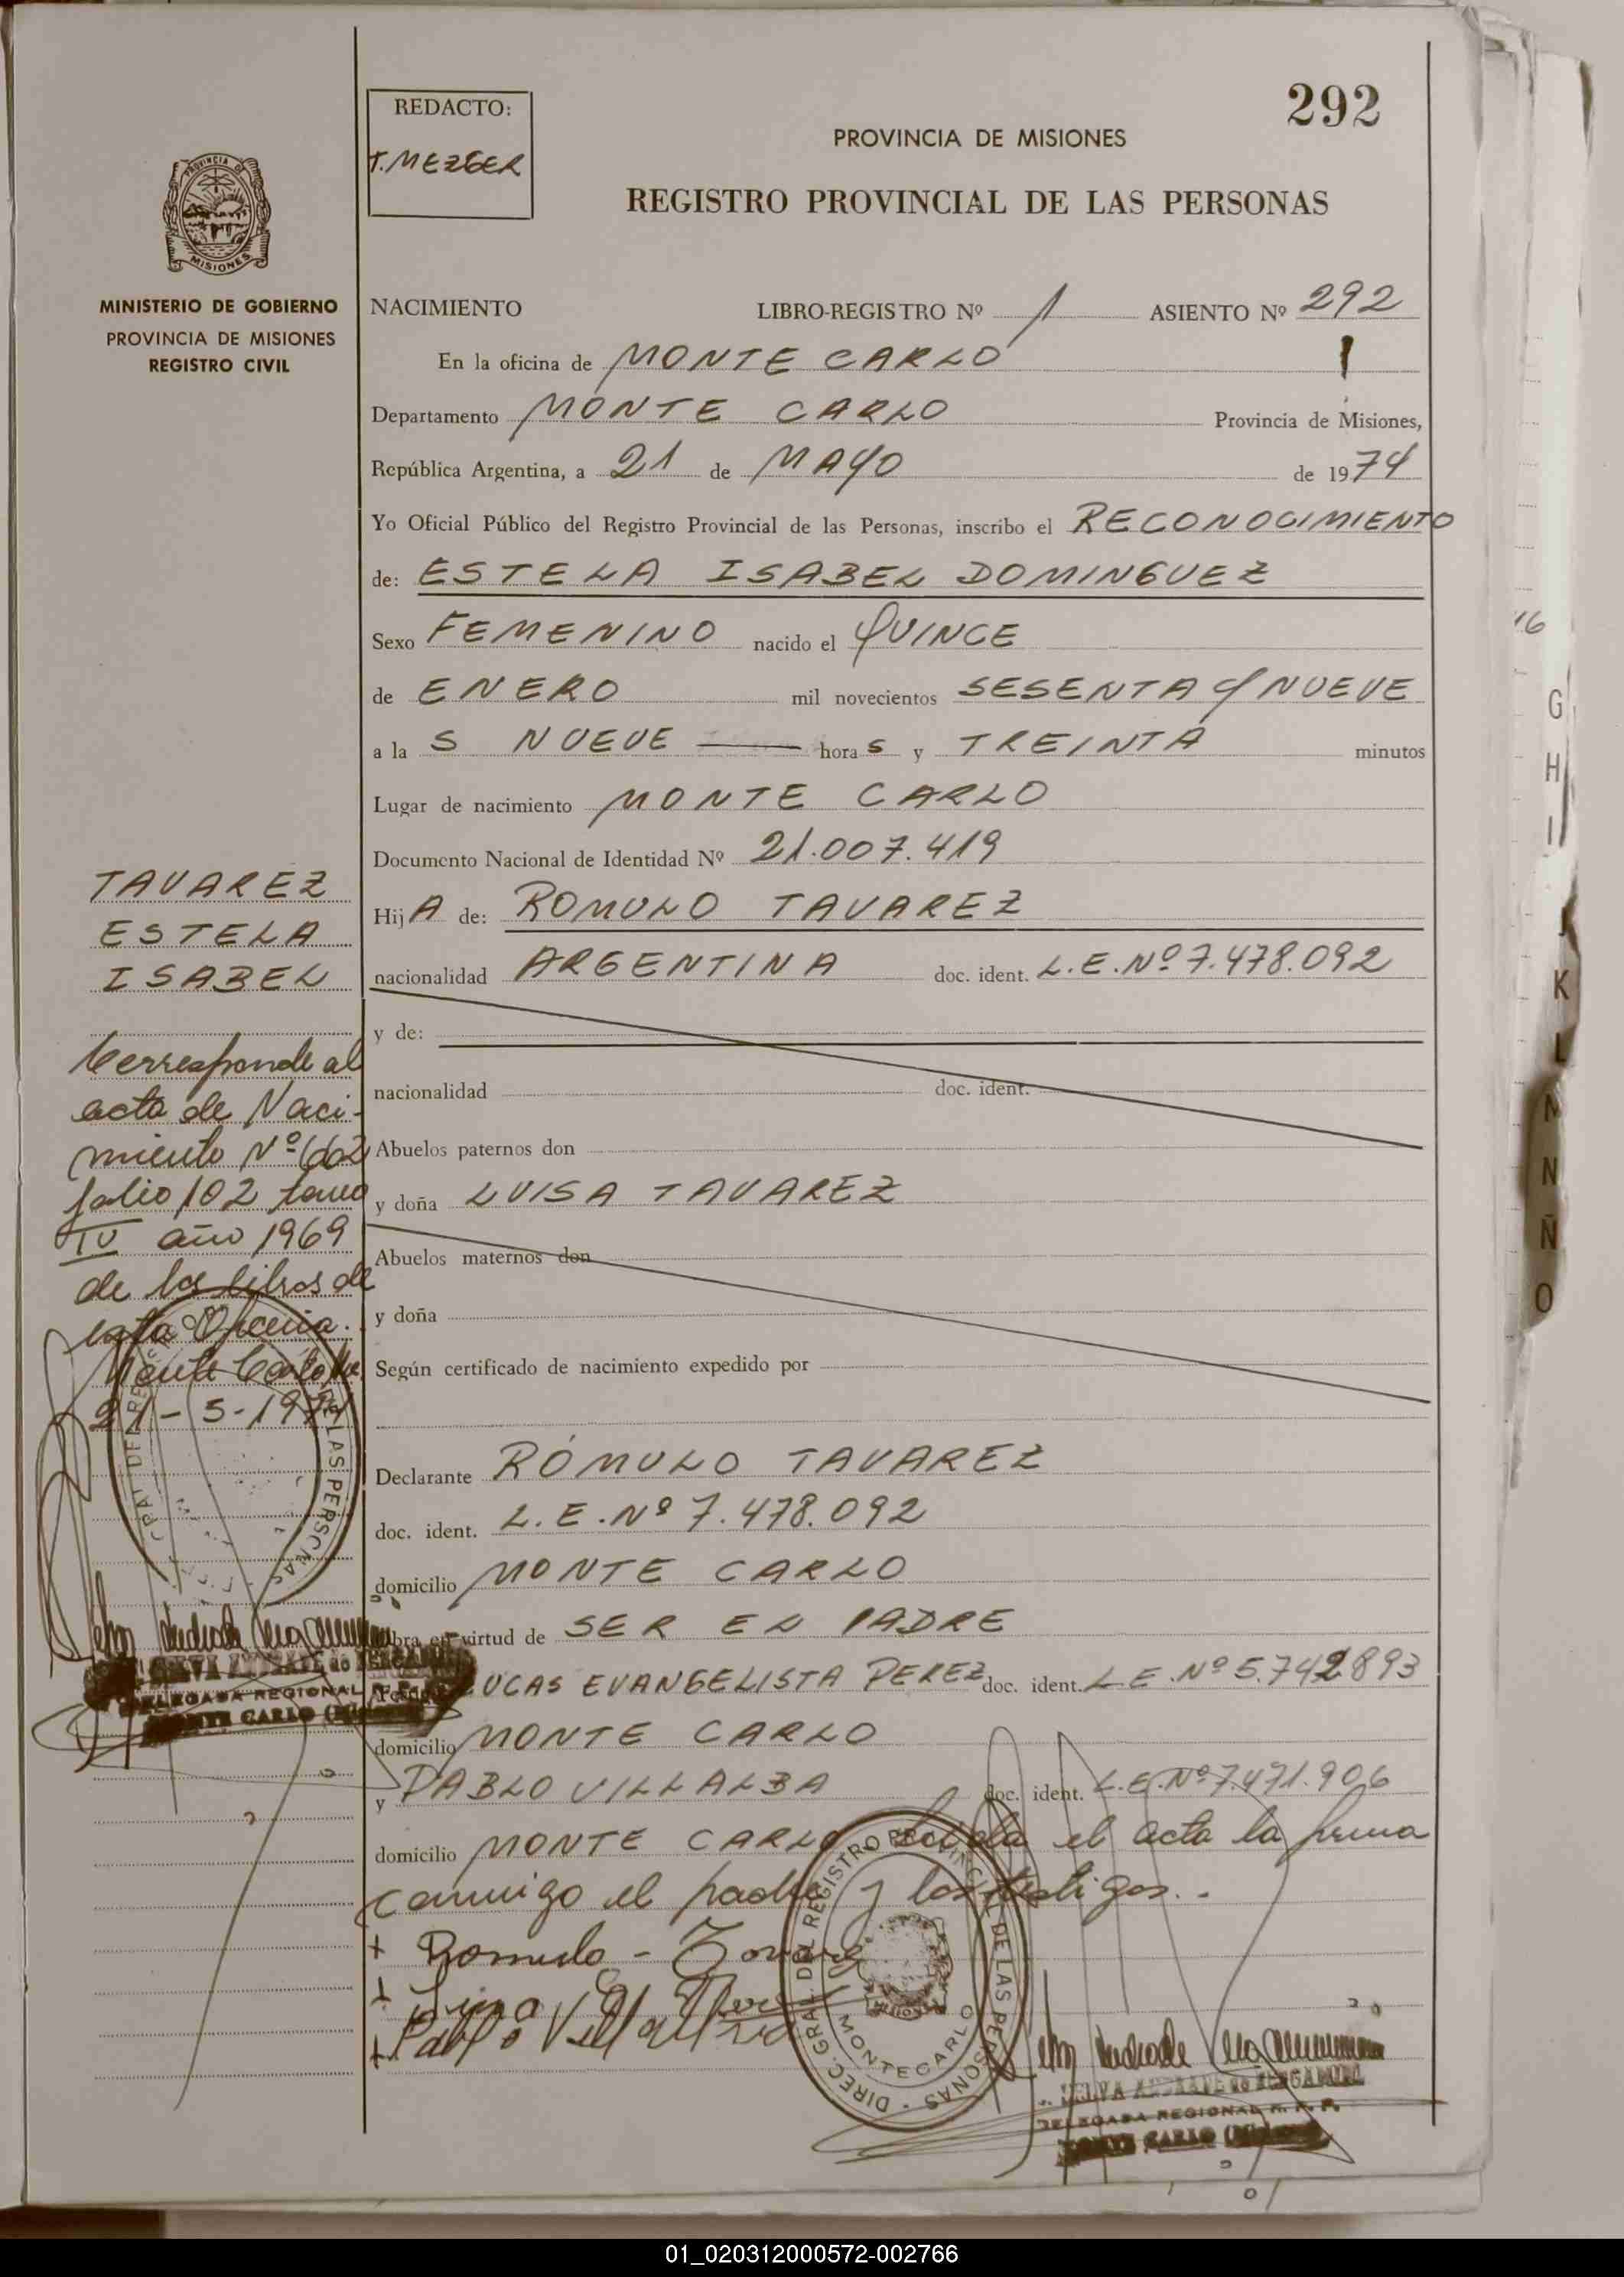 292
REDACTO:
T. MEZGER
PROVINCIA DE MISIONES
REGISTRO PROVINCIAL DE LAS PERSONAS
PROVINCIA DE
MISIONES
MINISTERIO DE GOBIERNO
PROVINCIA DE MISIONES
REGISTRO CIVIL
NACIMIENTO LIBRO-REGISTRO Nº 1 ASIENTO Nº 292
En la oficina de MONTE CARLO
Departamento MONTE CARLO Provincia de Misiones,
República Argentina, a 21 de MAYO de 1974
Yo Oficial Público del Registro Provincial de las Personas, inscribo el RECONOCIMIENTO
de: ESTELA ISABEL DOMINGUEZ
Sexo FEMENINO nacido el QUINCE
de ENERO mil novecientos SESENTA Y NUEVE
a la S NUEVE hora s y TREINTA minutos
Lugar de nacimiento MONTE CARLO
Documento Nacional de Identidad Nº 21.007.419
Hij A de: ROMULO TAVAREZ
nacionalidad ARGENTINA doc. ident. L.E.Nº 7.478.092
y de:
nacionalidad doc. ident.
Abuelos paternos don
y doña LUISA TAVAREZ
Abuelos maternos don
y doña
Según certificado de nacimiento expedido por
Declarante RÓMULO TAVAREZ
doc. ident. L.E.Nº 7.478.092
domicilio MONTE CARLO
obra en virtud de SER EL PADRE
LUCAS EVANGELISTA PEREZ doc. ident. L.E.Nº 5.742893
domicilio MONTE CARLO
y PABLO VILLALBA doc. ident. L.E.Nº 7.471.906
domicilio MONTE CARLO Leída el acta la firma
conmigo el padre y los testigos.-
+ Romulo - Tovarez
+
+ Pablo Villalba
TAVAREZ
ESTELA
ISABEL
Corresponde al
acta de Naci-
miento Nº 662
folio 102 tomo
IV año 1969
de los libros de
esta Oficina.
Monte Carlo
21-5-1974
DE LAS PERSONAS
DELEGADA REGIONAL
MONTE CARLO
DIREC. GRAL. DEL REGISTRO PROVINCIAL DE LAS PERSONAS
MONTECARLO
SELVA ANDRADE de
DELEGADA REGIONAL R. P. P.
MONTE CARLO
16
G
H
I
K
L
M
N
Ñ
O
01_020312000572-002766